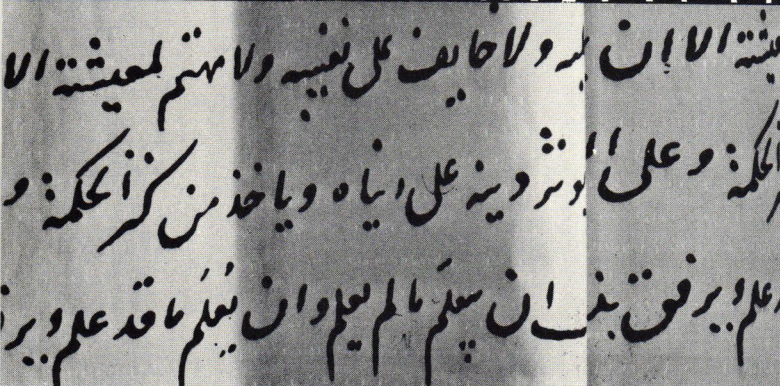 الا ان ولا خايف على نفسه ولا مهتم لمعيشة الا
الحكمة و على يوثر دينه على دنياه وياخذ من كنز الحكمة و
علم ويرفق ان يتعلم ما لم يعلم وان يُعلَم ما قد علم